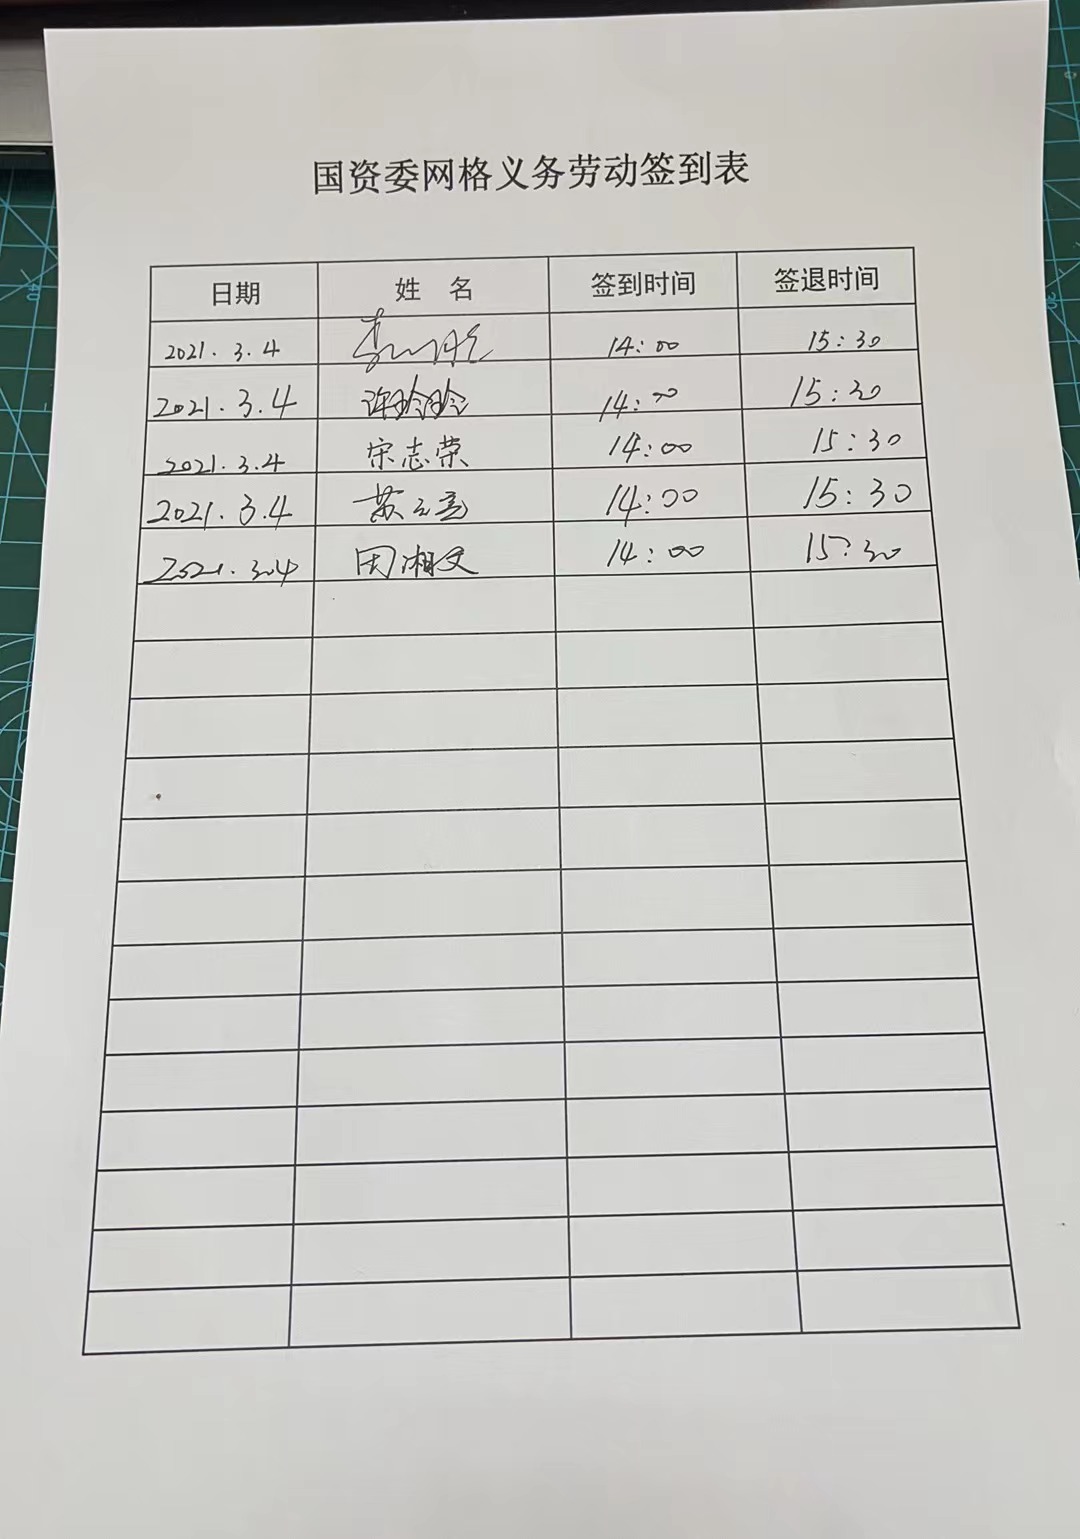 国资委网格义务劳动签到表
日期 姓 名 签到时间 签退时间
2021.3.4 14:00 15:30
2021.3.4 许玲玲 14:00 15:30
2021.3.4 宋志荣 14:00 15:30
2021.3.4 14:00 15:30
2021.3.4 田湘文 14:00 15:30